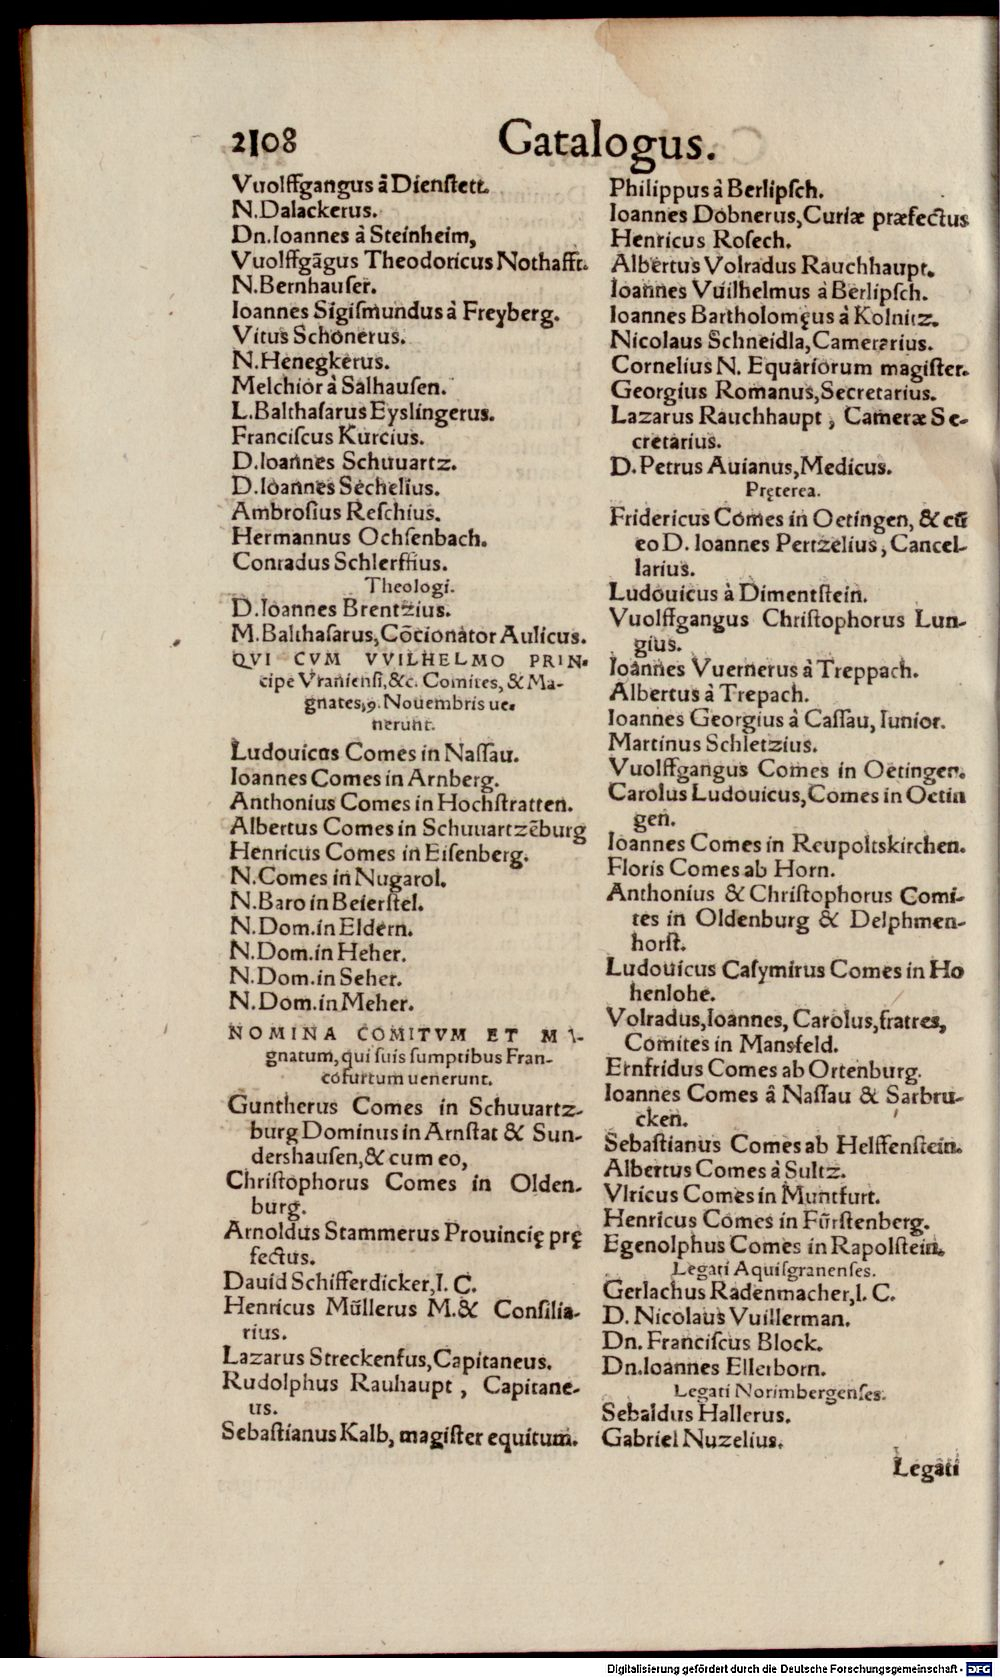 2108 Gatalogus.
Vuolffgangus à Dienstett.
N.Dalackerus.
Dn.Ioannes à Steinheim,
Vuolffgãgus Theodoricus Nothafft.
N.Bernhauser.
Ioannes Sigismundus à Freyberg.
Vitus Schonerus.
N.Henegkerus.
Melchior à Salhausen.
L.Balthasarus Eyslingerus.
Franciscus Kurcius.
D.Ioannes Schuuartz.
D.Ioannes Sechelius.
Ambrosius Reschius.
Hermannus Ochsenbach.
Conradus Schlerffius.
Theologi.
D.Ioannes Brentzius.
M.Balthasarus,Cõcionator Aulicus.
QVI CVM VVILHELMO PRIN-
cipe Vraniensi,&c. Comites, & Ma-
gnates,9. Nouembris ue-
nerunt.
Ludouicus Comes in Nassau.
Ioannes Comes in Arnberg.
Anthonius Comes in Hochstratten.
Albertus Comes in Schuuartzẽburg
Henricus Comes in Eisenberg.
N.Comes in Nugarol.
N.Baro in Beierstel.
N.Dom.in Eldern.
N.Dom.in Heher.
N.Dom.in Seher.
N.Dom.in Meher.
NOMINA COMITVM ET MA-
gnatum,qui suis sumptibus Fran-
cofurtum uenerunt.
Guntherus Comes in Schuuartz-
burg Dominus in Arnstat & Sun-
dershausen,& cum eo,
Christophorus Comes in Olden-
burg.
Arnoldus Stammerus Prouincię prę
fectus.
Dauid Schifferdicker,I. C.
Henricus Müllerus M.& Consilia-
rius.
Lazarus Streckenfus,Capitaneus.
Rudolphus Rauhaupt, Capitane-
us.
Sebastianus Kalb, magister equitum.
Philippus à Berlipsch.
Ioannes Dobnerus,Curiæ præfectus
Henricus Rosech.
Albertus Volradus Rauchhaupt.
Ioannes Vuilhelmus à Berlipsch.
Ioannes Bartholomęus à Kolnitz.
Nicolaus Schneidla,Camerarius.
Cornelius N. Equariorum magister.
Georgius Romanus,Secretarius.
Lazarus Rauchhaupt, Cameræ Se-
cretarius.
D.Petrus Auianus,Medicus.
Pręterea.
Fridericus Comes in Oetingen, & cũ
eo D. Ioannes Pertzelius, Cancel-
larius.
Ludouicus à Dimentstein.
Vuolffgangus Christophorus Lun-
gius.
Ioannes Vuernerus à Treppach.
Albertus à Trepach.
Ioannes Georgius à Cassau, Iunior.
Martinus Schletzius.
Vuolffgangus Comes in Oetingen.
Carolus Ludouicus,Comes in Oetin
gen.
Ioannes Comes in Reupoltskirchen.
Floris Comes ab Horn.
Anthonius & Christophorus Comi-
tes in Oldenburg & Delphmen-
horst.
Ludouicus Casymirus Comes in Ho
henlohe.
Volradus,Ioannes, Carolus,fratres,
Comites in Mansfeld.
Ernfridus Comes ab Ortenburg.
Ioannes Comes â Nassau & Sarbru-
cken.
Sebastianus Comes ab Helffenstein.
Albertus Comes à Sultz.
Vlricus Comes in Muntfurt.
Henricus Comes in Fürstenberg.
Egenolphus Comes in Rapolstein.
Legati Aquisgranenses.
Gerlachus Radenmacher,I. C.
D. Nicolaus Vuillerman.
Dn. Franciscus Block.
Dn.Ioannes Ellerborn.
Legati Norimbergenses.
Sebaldus Hallerus.
Gabriel Nuzelius.
Legati
Digitalisierung gefördert durch die Deutsche Forschungsgemeinschaft - DFG